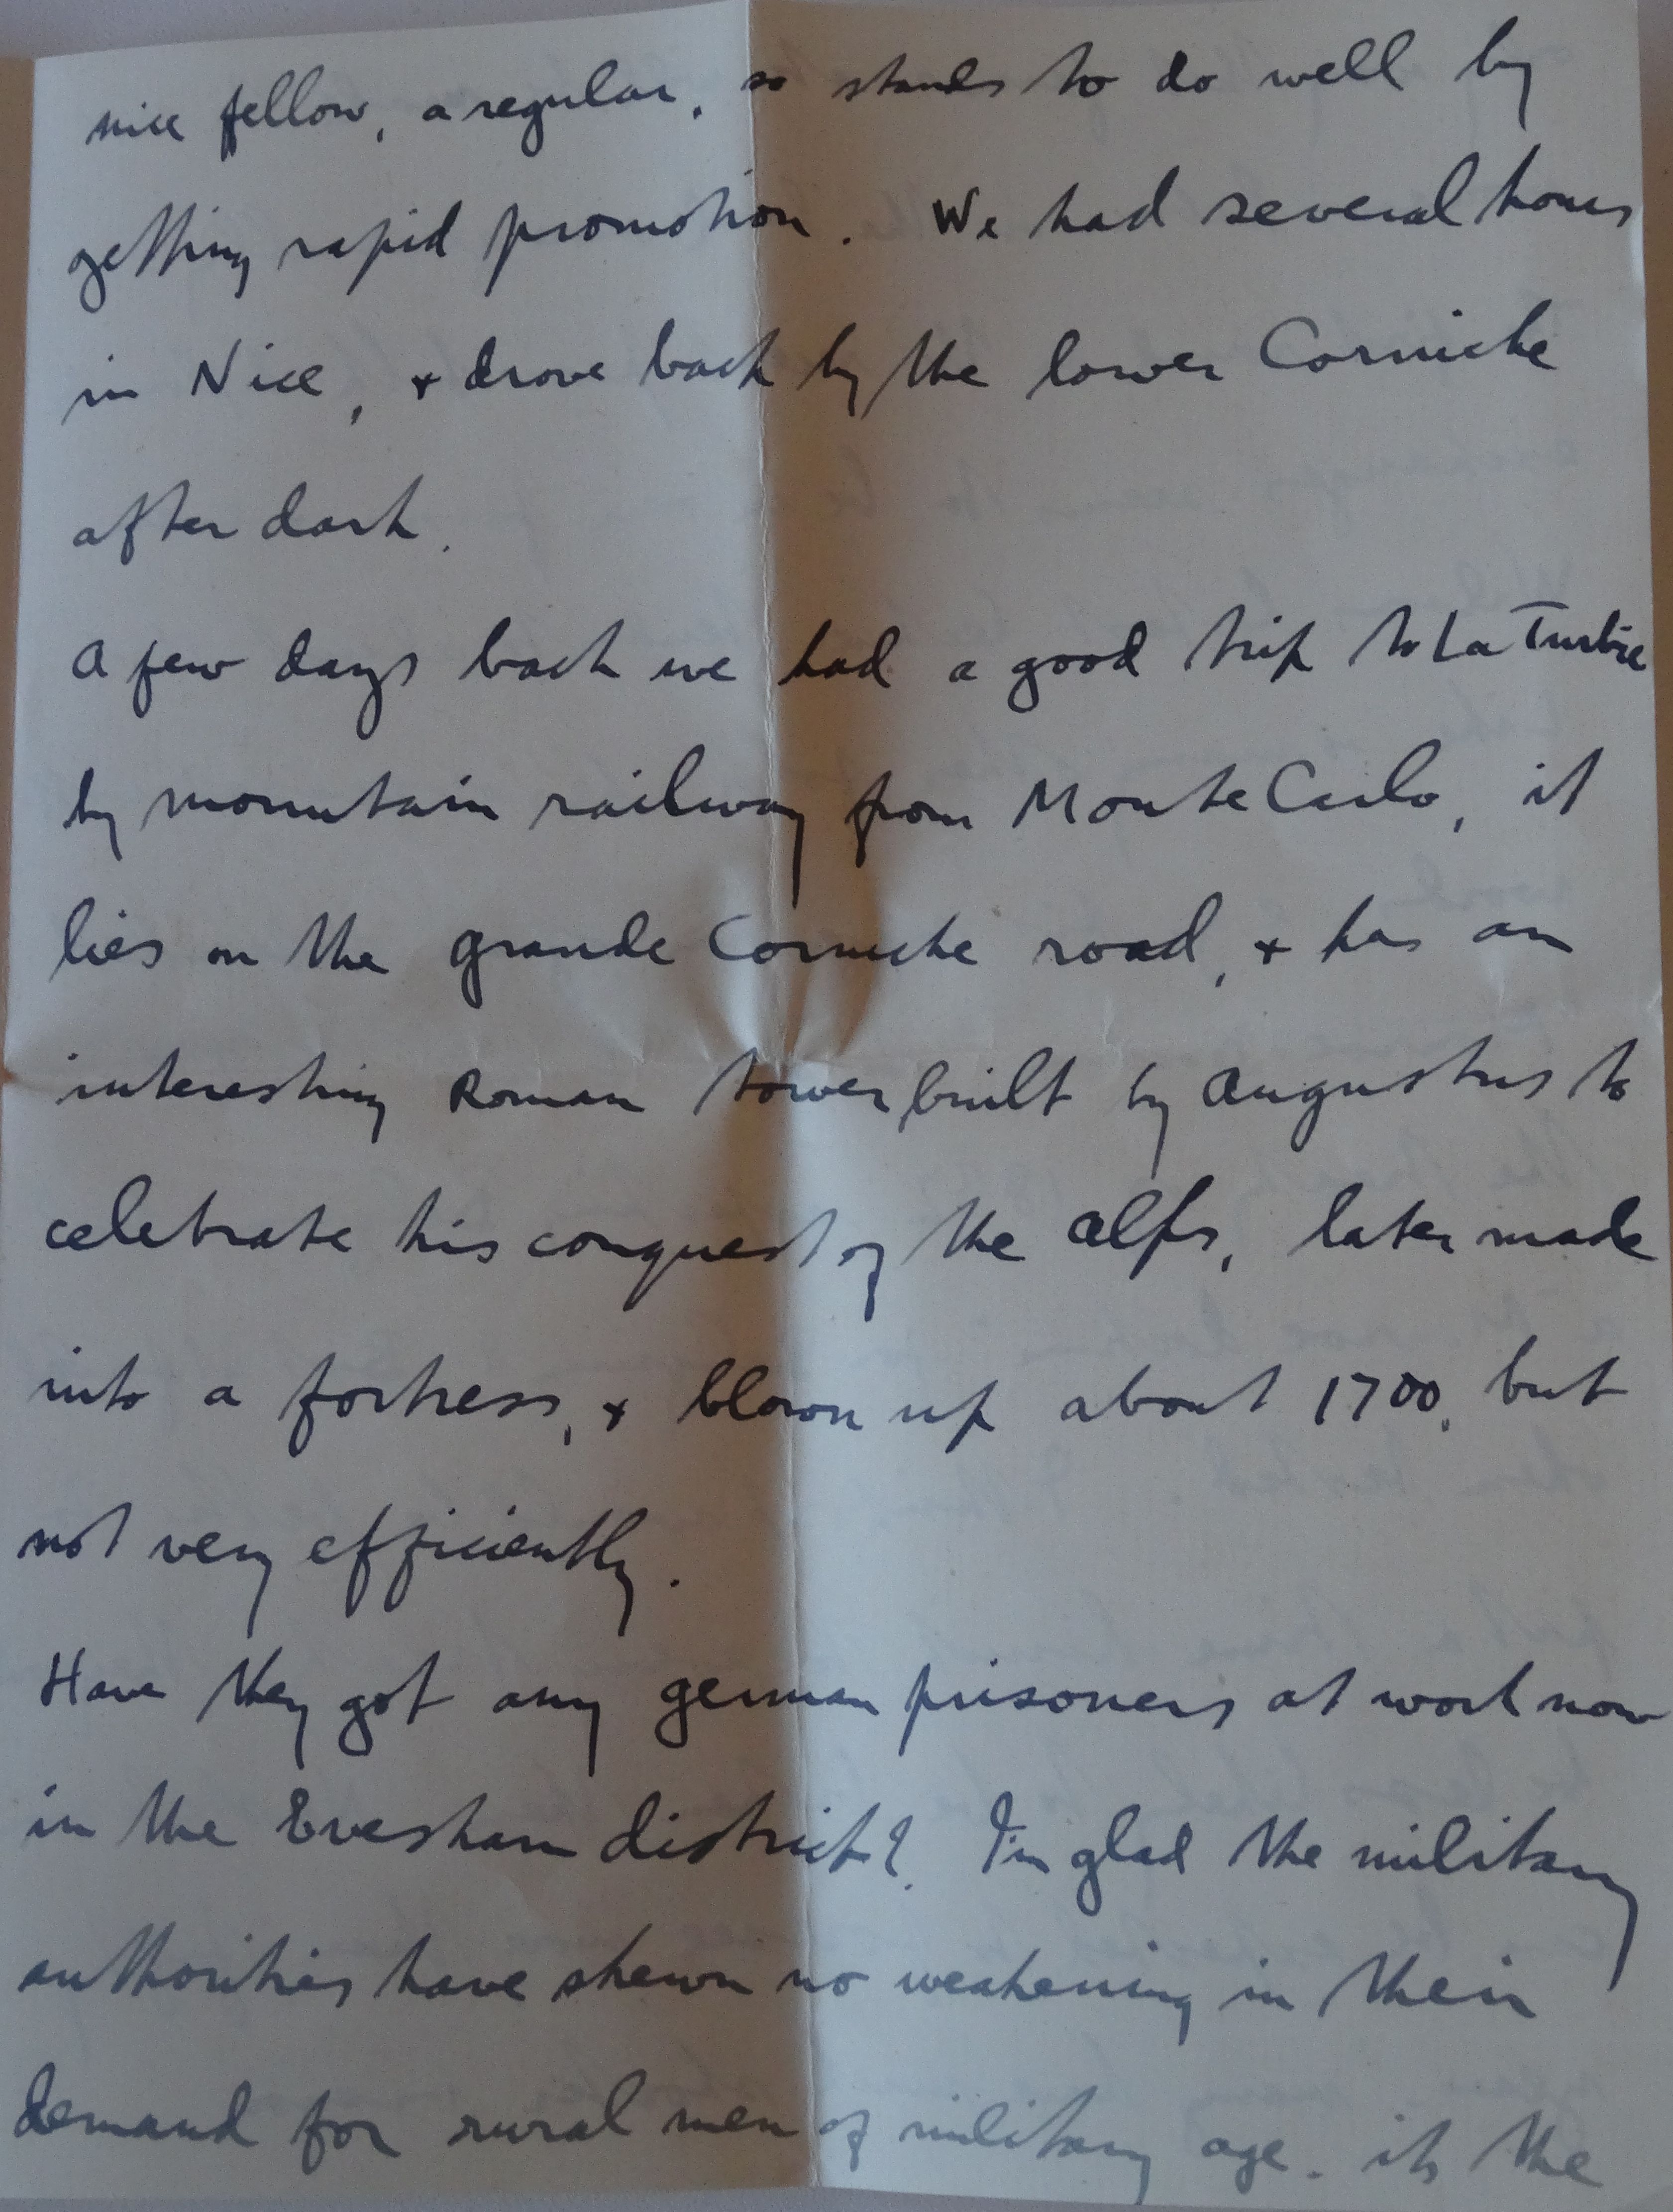 nice fellow, a regular, so stands to do well by
getting rapid promotion. We had several hours
in Nice, & drove back by the lower Corniche
after dark.
A few days back we had a good trip to La Turbie
by mountain railway from Monte Carlo, it
lies on the grande Corniche road, & has an
interesting Roman tower built by Augustus to
celebrate his conquest of the Alps, later made
into a fortress, & blown up about 1700, but
not very efficiently.
Have they got any german prisoners at work now
in the Evesham district? I'm glad the military
authorities have shewn no weakening in their
demand for rural men of military age. its the